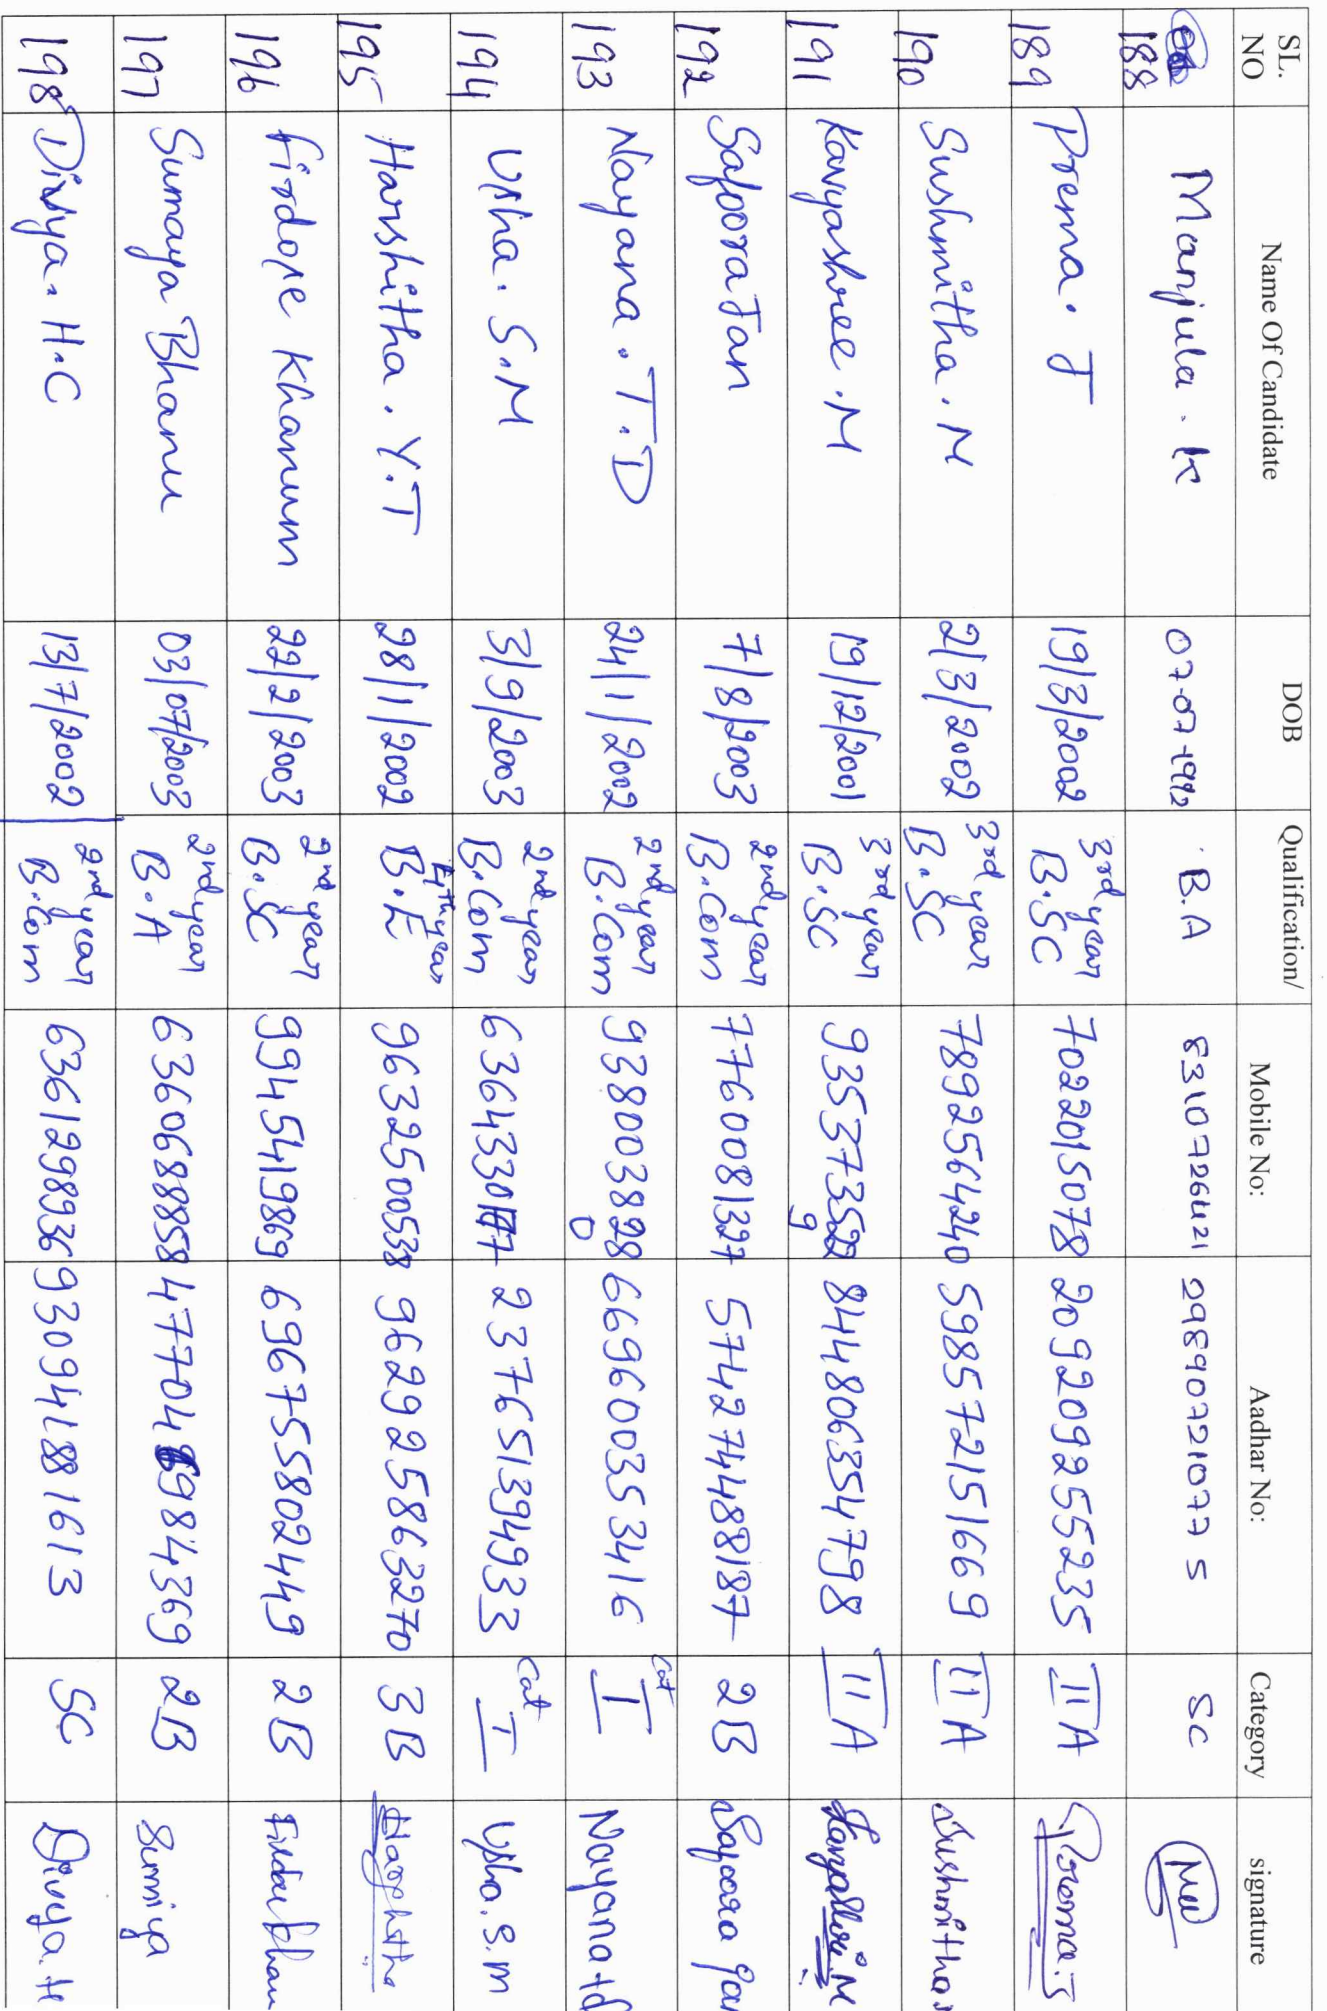 SL. NO Name Of Candidate DOB Qualification/ Mobile No: Aadhar No: Category signature
188 Manjula . K 07-07-1992 B.A 8310726421 298907210775 SC
189 Prema . J 19/3/2002 3rd year B.SC 7022015078 209209255235 II A Prema.J
190 Sushmitha . N 2/3/2002 3rd year B.SC 7892564240 598572151669 II A Sushmitha
191 Kavyashree . M 19/12/2001 3rd year B.SC 844806354798 II A
192 Safoora Jan 7/8/2003 2nd year B.Com 7760081327 574274488187 2B Safoora Jan
193 Nayana . T.D 24/1/2002 2nd year B.Com 669600353416 Cat I Nayana td
194 Usha . S.M 3/9/2003 2nd year B.Com 237651394933 Cat I Usha.S.m
195 Harshitha . Y.T 28/1/2002 4th year B.E 9632500538 962925863270 3B Harshitha
196 Firdose Khanum 22/2/2003 2nd year B.SC 9945419869 696755802449 2B
197 Sumaya Bhanu 03/07/2003 2nd year B.A 6360688858 2B Sumiya
198 Divya. H.C 13/7/2002 2nd year B.Com 6361298936 930941881613 SC Divya.H